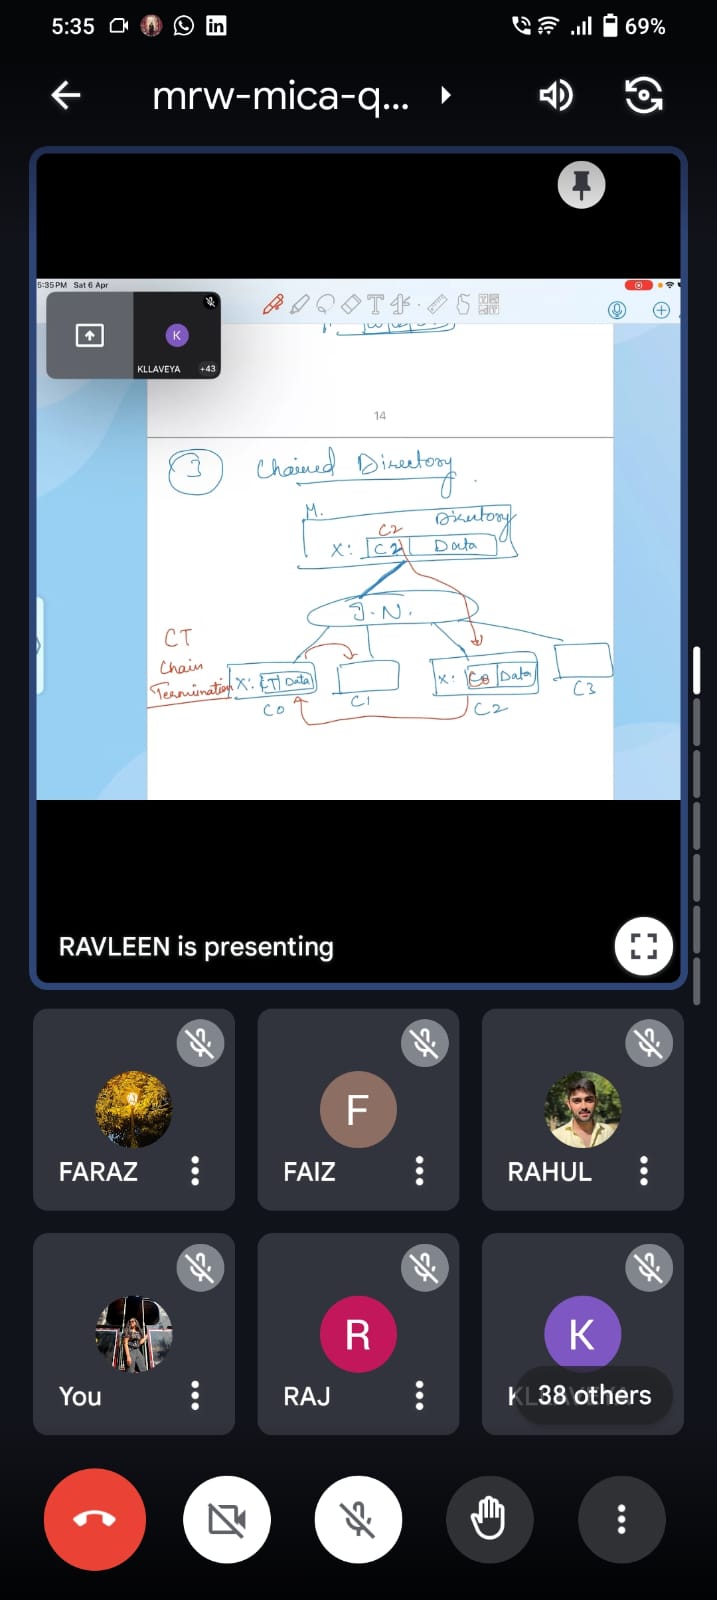 5:35
in
69%
mrw-mica-q...
5:35 PM Sat 6 Apr
K
KLLAVEYA +43
14
3 Chained Directory
M.
Directory
C2
X: C2 Data
J.N.
CT
Chain
Termination
X: CT Data
X: C0 Data
C0 C1 C2 C3
RAVLEEN is presenting
F
FARAZ FAIZ RAHUL
R K
You RAJ 38 others